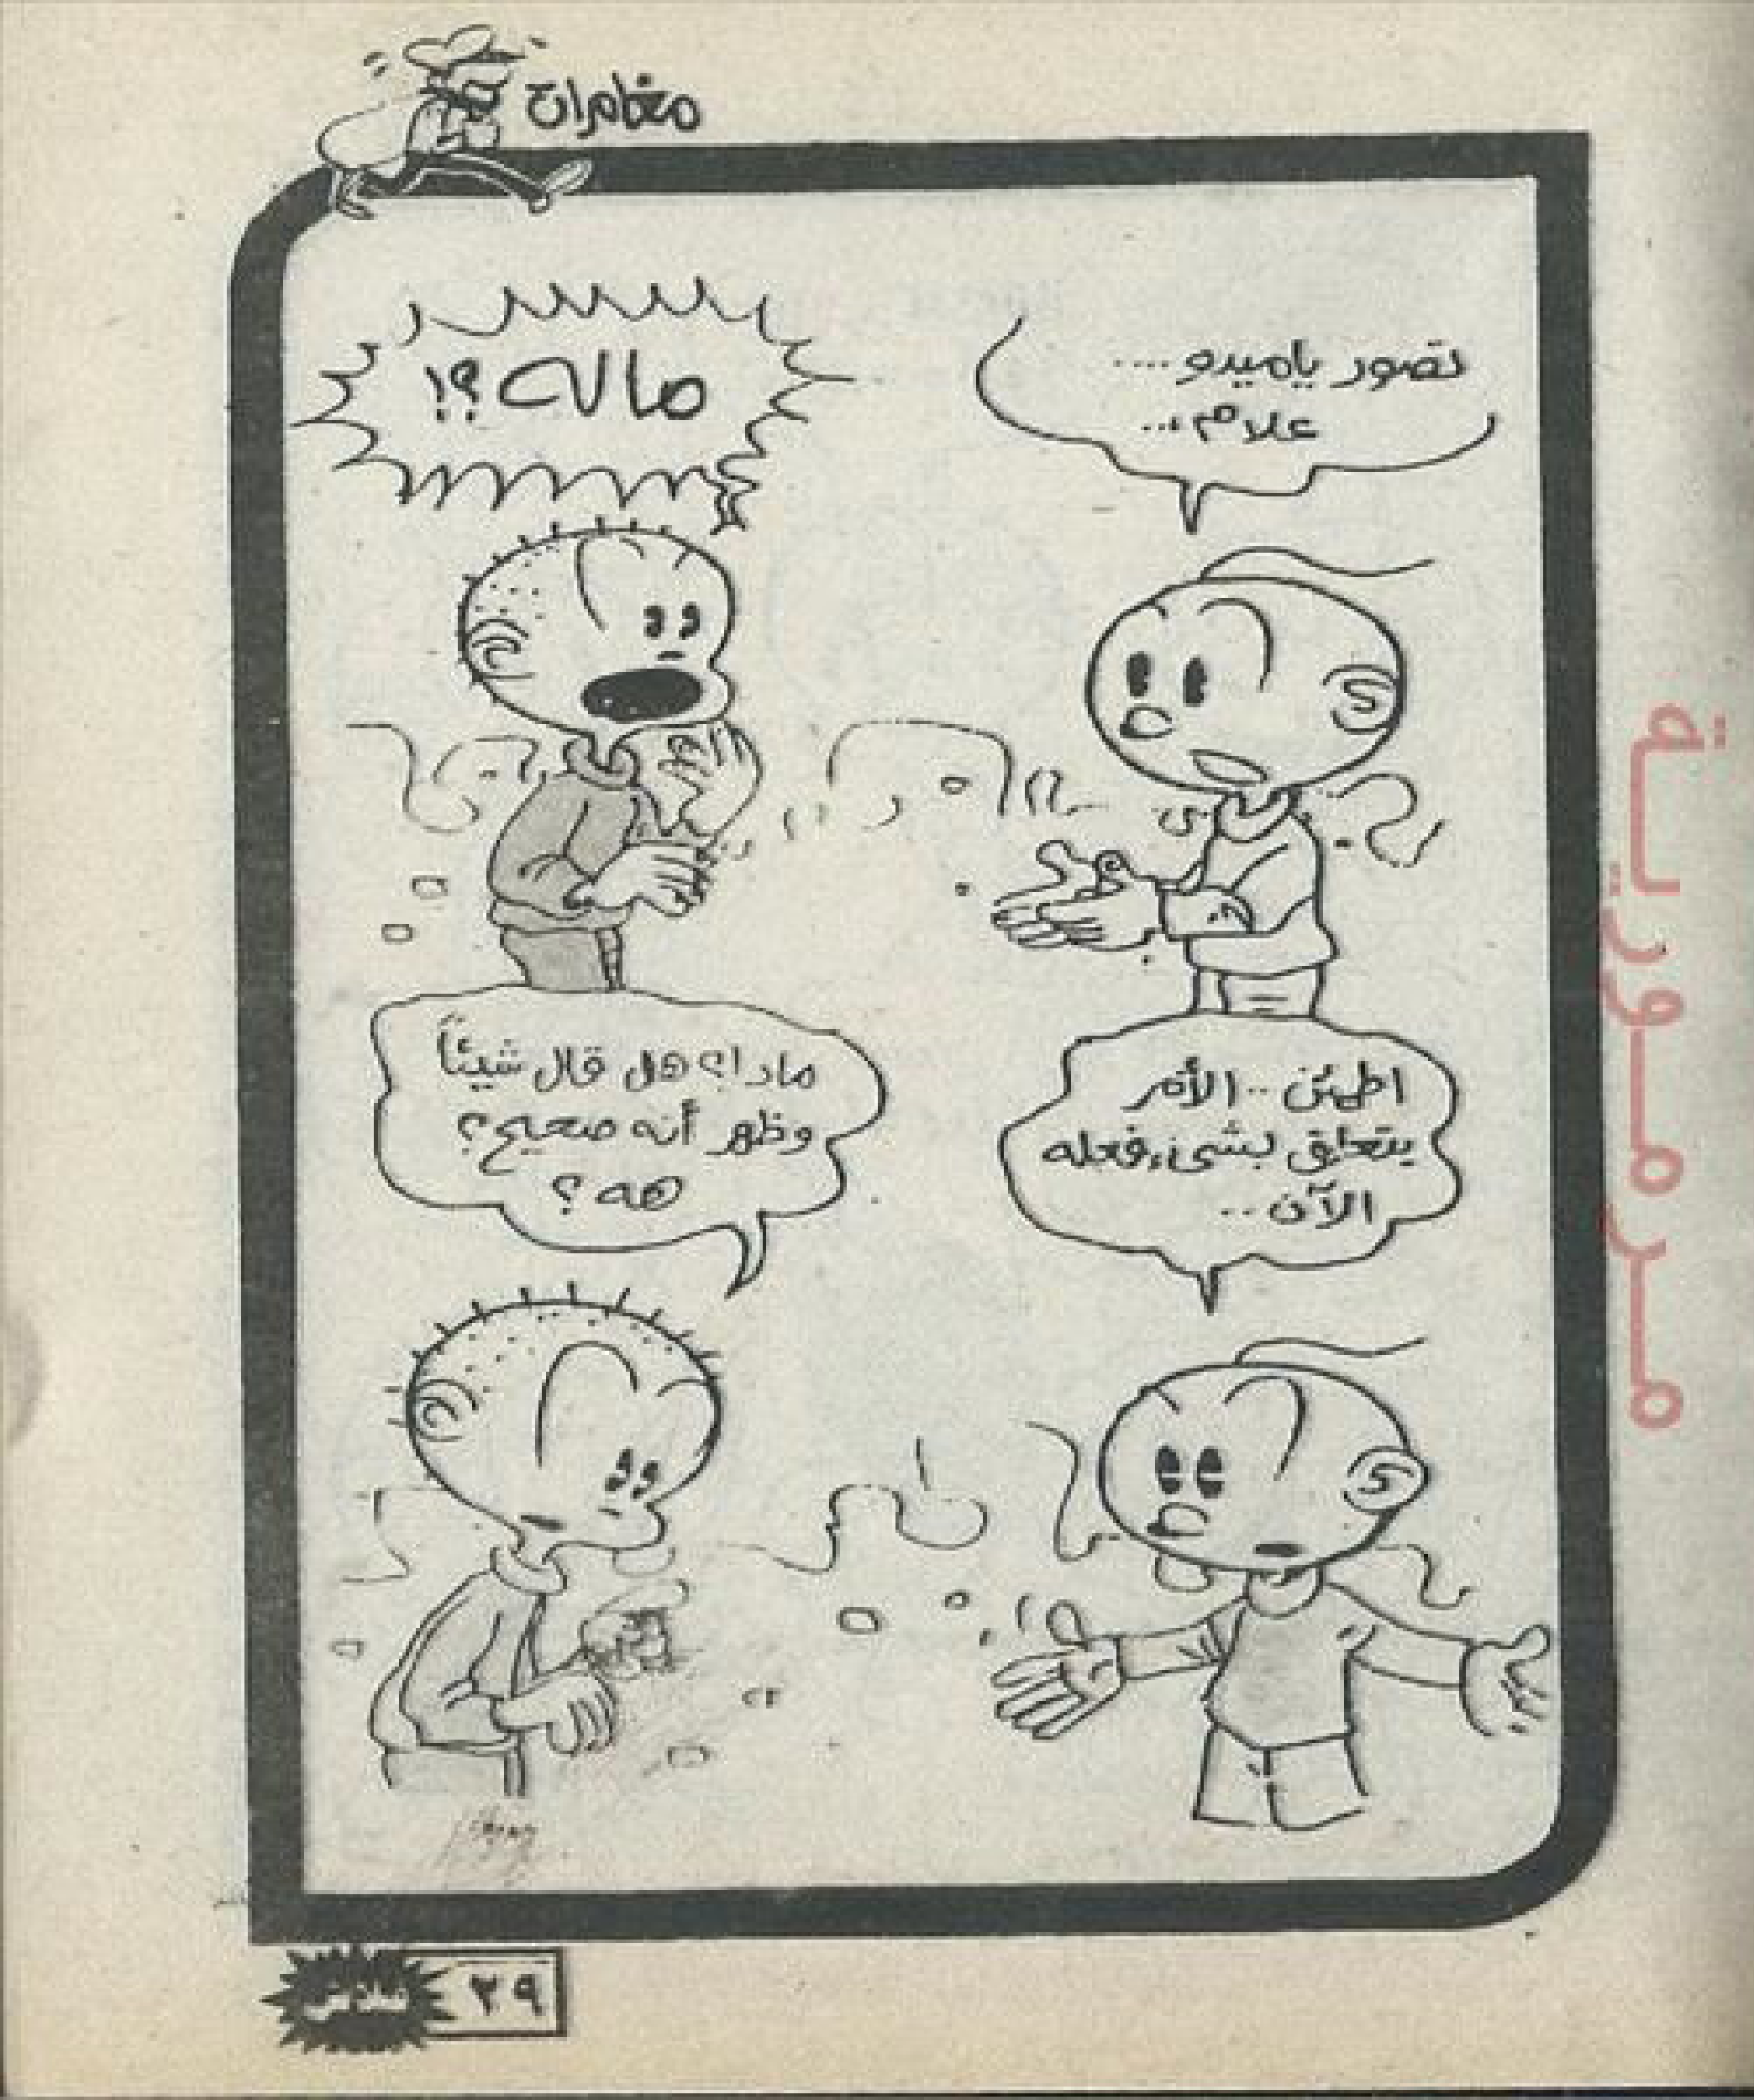 مغامرات
تصور ياميدو ....
علام ...
ماله ؟!
اطمئن .. الأمر
يتعلق بشئ، فعله
الآن ..
ماذا!؟ هل قال شيئاً
وظهر أنه صحيح؟
هه ؟
٢٩
مرمورية